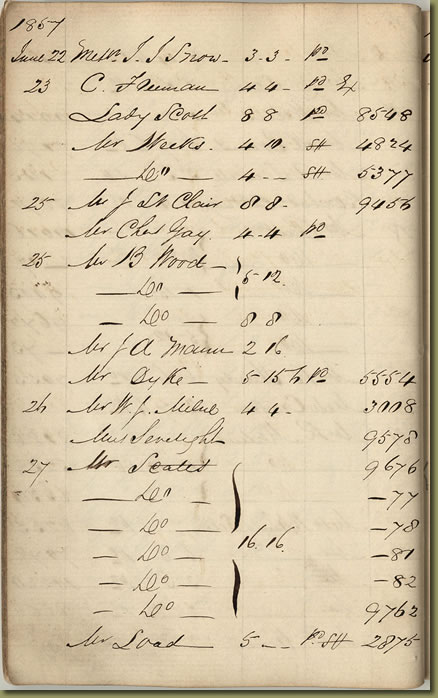 1857
June 22 Messrs J. J. Snow - 3-3- pd
23 C. Freeman 4 4 - pd Ex
Lady Scott 8 8 pd 8548
Mr Weeks. 4 10. SH 4824
— Do — 4 - - SH 5377
25 Mr J St Clair 8 8 - 9456
Mr Chas Gay. 4-4 pd
25 Mr B Wood —
— Do — 5-12.
— Do — 8 8
Mr J A Mann 2 16
Mr Dyke — 5-15 6 pd 5554
26 Mr W. J. Milne 4 4 - 3008
9578
27 Mr Scates 9676
— Do — -77
— Do — -78
— Do — 16.16. -81
— Do — -82
— Do — 9762
Mr Load 5 - - pd SH 2875